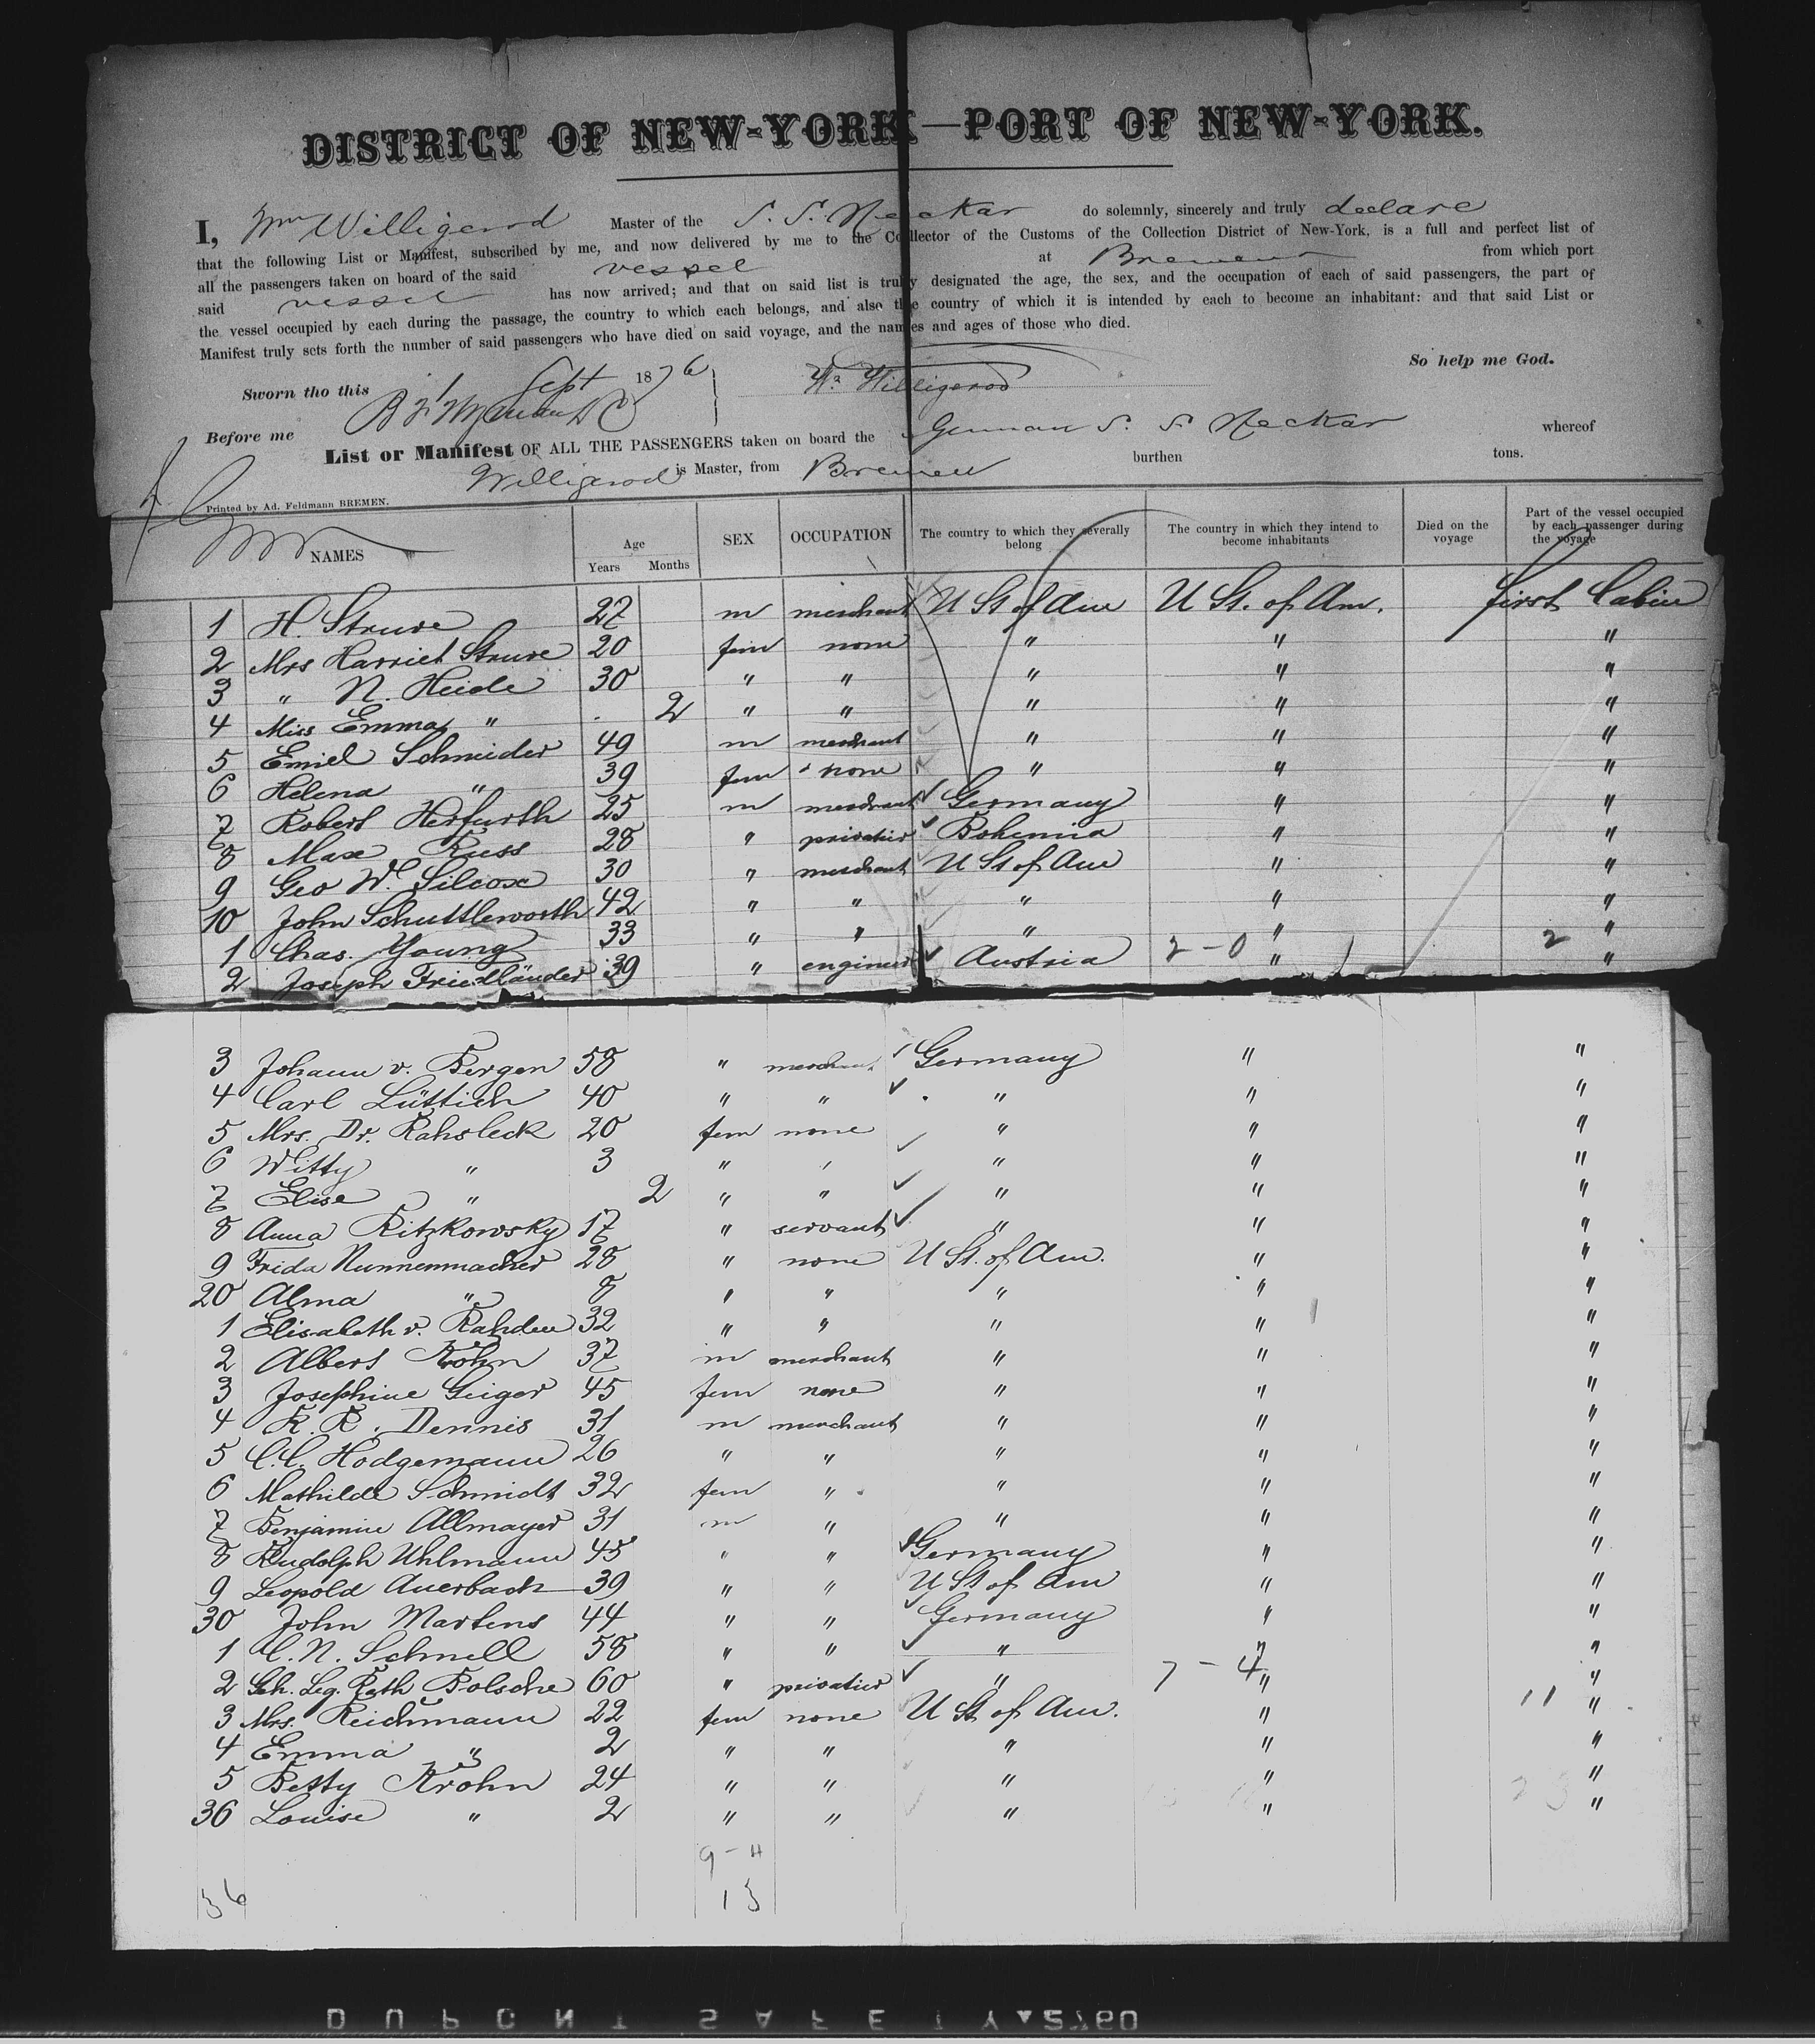 DISTRICT OF NEW-YORK—PORT OF NEW-YORK.
I, Wm Willigerod Master of the S. S. Neckar do solemnly, sincerely and truly declare
that the following List or Manifest, subscribed by me, and now delivered by me to the Collector of the Customs of the Collection District of New-York, is a full and perfect list of
all the passengers taken on board of the said vessel at Bremen from which port
said vessel has now arrived; and that on said list is truly designated the age, the sex, and the occupation of each of said passengers, the part of
the vessel occupied by each during the passage, the country to which each belongs, and also the country of which it is intended by each to become an inhabitant: and that said List or
Manifest truly sets forth the number of said passengers who have died on said voyage, and the names and ages of those who died.
So help me God.
Sworn tho this 1 Sept 1876 Wm Willigerod
Before me
List or Manifest OF ALL THE PASSENGERS taken on board the German S. S. Neckar whereof
Willigerod is Master, from Bremen burthen tons.
Printed by Ad. Feldmann BREMEN.
NAMES Age Years Months SEX OCCUPATION The country to which they severally belong The country in which they intend to become inhabitants Died on the voyage Part of the vessel occupied by each passenger during the voyage
1 H. Struve 27 m merchant U St of Am U St. of Am. first Cabin
2 Mrs Harriet Struve 20 fem none " " "
3 " N. Heide 30 " " " " "
4 Miss Emma " . 2 " " " " "
5 Emiel Schneider 49 m merchant " " "
6 Helena " 39 fem none " " "
7 Robert Herfurth 25 m merchant Germany " "
8 Max Russ 28 " privatier Bohemia " "
9 Geo W. Silcox 30 " merchant U St of Am " "
10 John Schuttleworth 42 " " " " "
1 Chas. Young 33 " " " " "
2 Joseph Friedländer 39 " engineer Austria 2-0 " 2 "
3 Johann v. Bergen 58 " merchant Germany " "
4 Carl Lüttich 40 " " " " "
5 Mrs. Dr. Rahsleck 20 fem none " " "
6 Witty " 3 " " " " "
7 Elise " 2 " " " " "
8 Anna Ritzkowsky 17 " servant " " "
9 Frida Nunnenmacher 28 " none U St. of Am. " "
20 Alma " 8 " " " " "
1 Elisabeth v. Rahden 32 " " " " "
2 Albert Krohn 37 m merchant " " "
3 Josephine Geiger 45 fem none " " "
4 R. R. Dennis 31 m merchant " " "
5 C. C. Hodgemann 26 " " " " "
6 Mathilde Schmidt 32 fem " " " "
7 Benjamin Allmayer 31 m " " " "
8 Rudolph Uhlmann 45 " " Germany " "
9 Leopold Auerbach 39 " " U St of Am " "
30 John Martens 44 " " Germany " "
1 C. N. Schnell 58 " " " " "
2 Geh. Leg. Rath Bolsche 60 " privatier " 7-4 " "
3 Mrs. Reichmann 22 fem none U St of Am. " 11 "
4 Emma " 2 " " " " "
5 Betty Krohn 24 " " " " "
36 Louise " 2 " " " " "
9-4
36 13
DUPONT SAFETY 2760